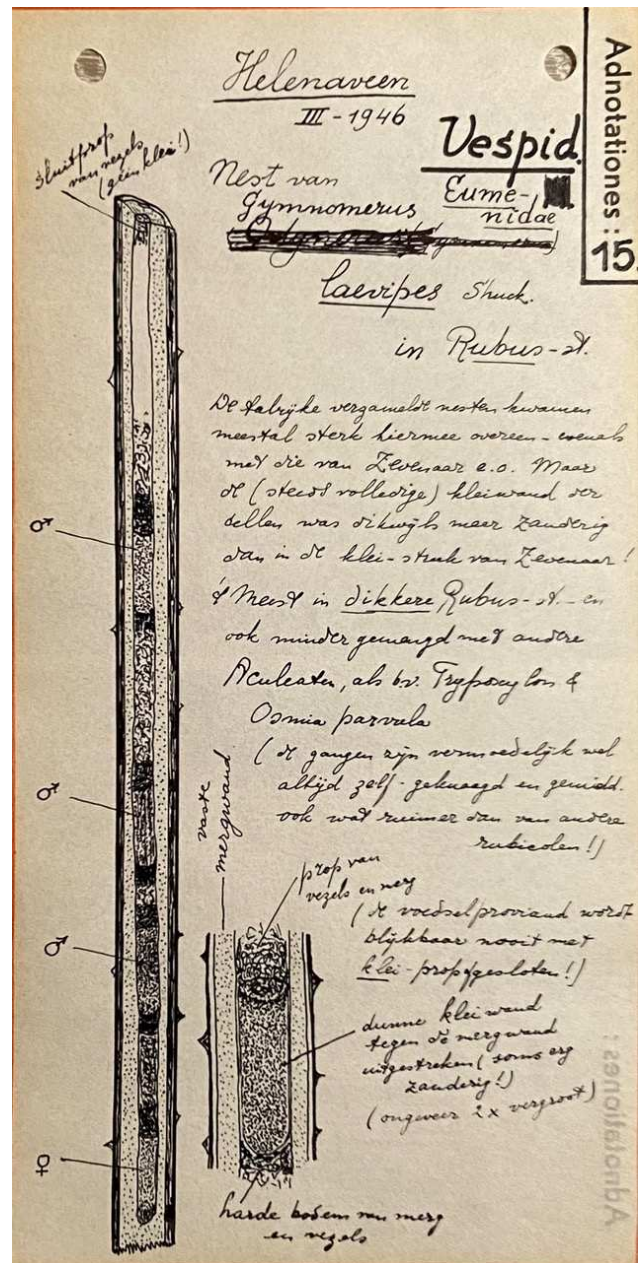 Adnotationes : 15.
Helenaveen
III - 1946
Vespid.
Eume-
nidae
Nest van
Gymnomerus
laevipes Shuck.
in Rubus-st.
sluitprop
van vezels
(géén klei!)
De talrijke verzamelde nesten kwamen
meestal sterk hiermee overeen - evenals
met die van Zevenaar e.o. Maar
de (steeds volledige) kleiwand der
cellen was dikwijls meer zanderig
dan in de klei-streek van Zevenaar!
Meest in dikkere Rubus-st. - en
ook minder gemengd met andere
Aculeaten, als b.v. Trypoxylon &
Osmia parvula
(de gangen zijn vermoedelijk wel
altijd zelf-geknaagd en gemidd.
ook wat ruimer dan van andere
rubicolen!)
♂
♂
♂
♀
vaste
mergwand
prop van
vezels en merg
(de voedselproviand wordt
blijkbaar nooit met
klei-prop gesloten!)
dunne kleiwand
tegen de mergwand
uitgestreken (soms erg
zanderig!)
(ongeveer 2x vergroot)
harde bodem van merg
en vezels
Adnotationes :